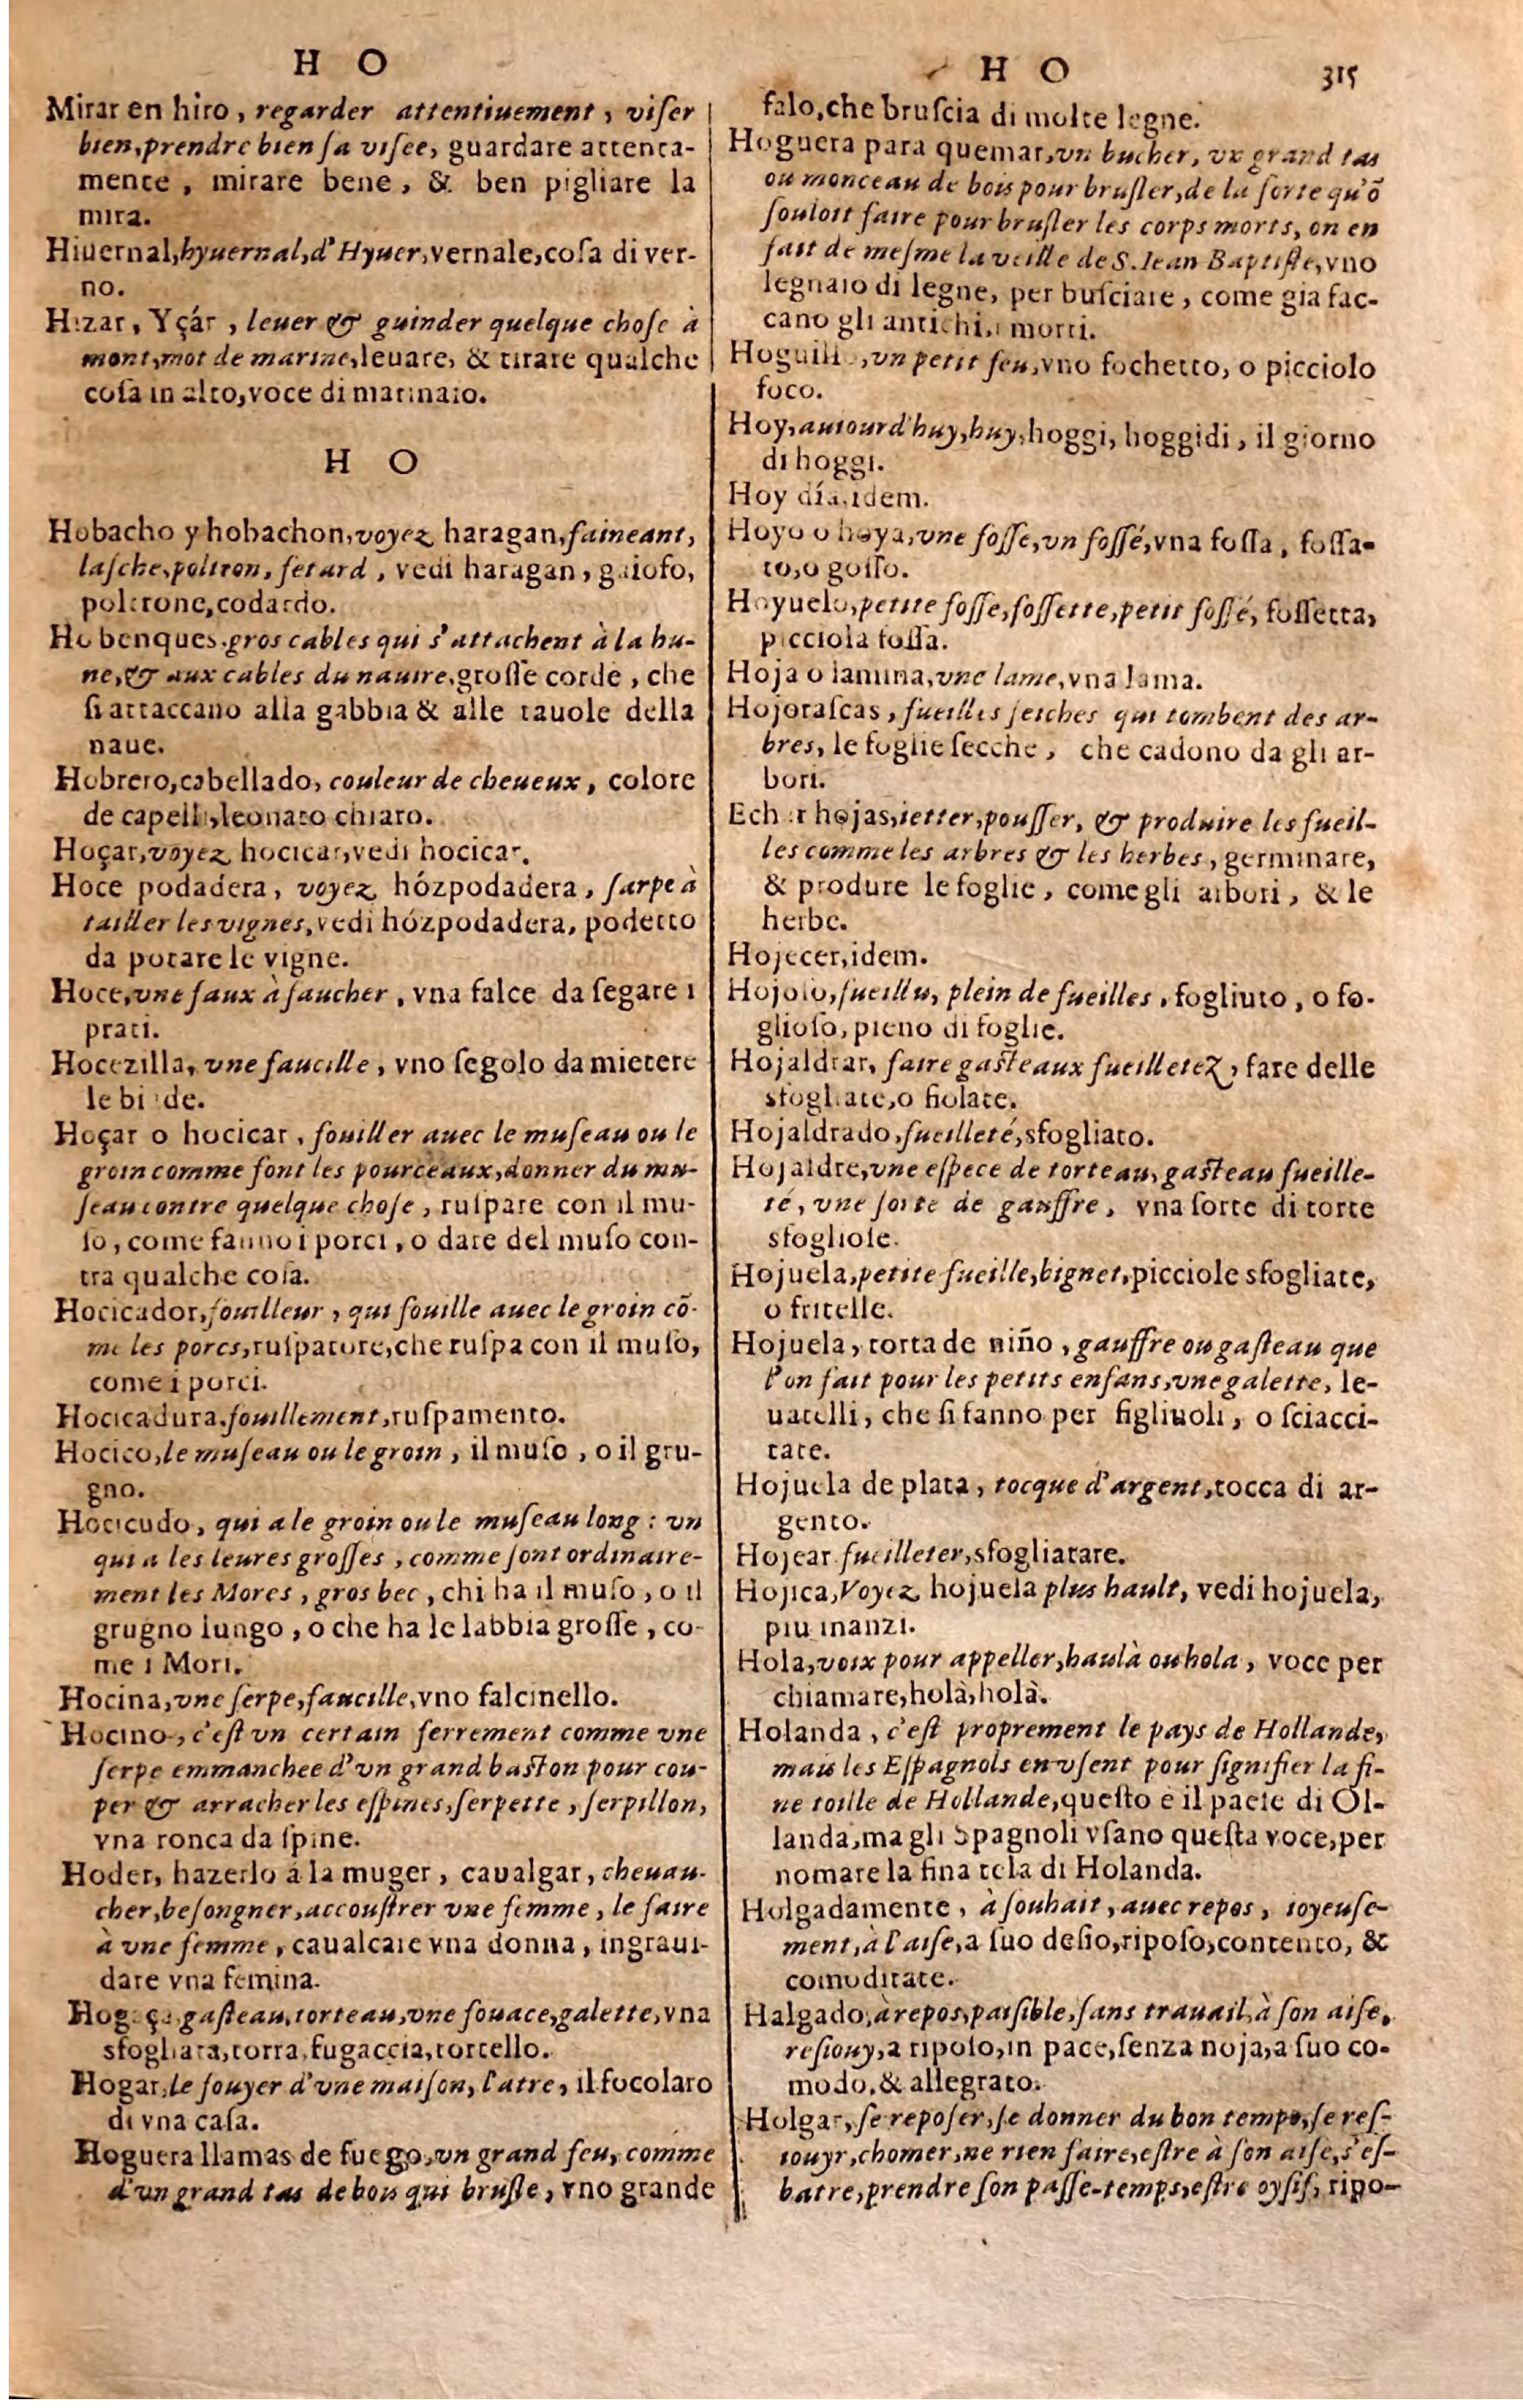 H O
Mirar en hito, regarder attentiuement, viſer
bien, prendre bien ſa viſee, guardare attenta-
mente, mirare bene, & ben pigliare la
mira.
Hiuernal, hyuernal, d'Hyuer, vernale, coſa di ver-
no.
Hizar, Yçár, leuer & guinder quelque choſe à
mont, mot de marine, leuare, & tirare qualche
coſa in alto, voce di marinaio.
H O
Hobacho y hobachon, voyez haragan, faineant,
laſche, poltron, fetard, vedi haragan, gaiofo,
poltrone, codardo.
Hobenques, gros cables qui s'attachent à la hu-
ne, & aux cables du nauire, groſſe corde, che
ſi attaccano alla gabbia & alle tauole della
naue.
Hobrero, cabellado, couleur de cheueux, colore
de capelli, leonato chiaro.
Hoçar, voyez hocicar, vedi hocicar.
Hoce podadera, voyez hózpodadera, ſarpe à
tailler les vignes, vedi hózpodadera, podetto
da potare le vigne.
Hoce, vne faux à faucher, vna falce da ſegare i
prati.
Hocezilla, vne faucille, vno ſegolo da mietere
le biade.
Hoçar o hocicar, fouiller auec le muſeau ou le
groin comme font les pourceaux, donner du mu-
ſeau contre quelque choſe, ruſpare con il mu-
ſo, come fanno i porci, o dare del muſo con-
tra qualche coſa.
Hocicador, fouilleur, qui fouille auec le groin cō-
me les porcs, ruſpatore, che ruſpa con il muſo,
come i porci.
Hocicadura, fouillement, ruſpamento.
Hocico, le muſeau ou le groin, il muſo, o il gru-
gno.
Hocicudo, qui a le groin ou le muſeau long: vn
qui a les leures groſſes, comme ſont ordinaire-
ment les Mores, gros bec, chi ha il muſo, o il
grugno lungo, o che ha le labbia groſſe, co-
me i Mori.
Hocina, vne ſerpe, faucille, vno falcinello.
Hocino, c'eſt vn certain ferrement comme vne
ſerpe emmanchee d'vn grand baſton pour cou-
per & arracher les eſpines, ſerpette, ſerpillon,
vna ronca da ſpine.
Hoder, hazerlo á la muger, caualgar, cheuau-
cher, beſongner, accouſtrer vne femme, le faire
à vne femme, caualcare vna donna, ingraui-
dare vna femina.
Hogaça gaſteau, torteau, vne fouace, galette, vna
sfogliata, torra, fugaccia, tortello.
Hogar, le fouyer d'vne maiſon, l'atre, il focolaro
di vna caſa.
Hoguera llamas de fuego, vn grand feu, comme
d'vn grand tas de bois qui bruſle, vno grande
H O 315
falo, che bruſcia di molte legne.
Hoguera para quemar, vn bucher, vn grand tas
ou monceau de bois pour bruſler, de la ſorte qu'ō
ſouloit faire pour bruſler les corps morts, on en
fait de meſme la veille de S. Iean Baptiſte, vno
legnaio di legne, per buſciare, come gia fac-
cano gli antichi, i morti.
Hoguillo, vn petit feu, vno fochetto, o picciolo
foco.
Hoy, auiourd'huy, huy, hoggi, hoggidi, il giorno
di hoggi.
Hoy día, idem.
Hoyo o hoya, vne foſſe, vn foſſé, vna foſſa, foſſa-
to, o goſſo.
Hoyuelo, petite foſſe, foſſette, petit foſſé, foſſetta,
picciola foſſa.
Hoja o lamina, vne lame, vna lama.
Hojoraſcas, fueilles ſeiches qui tombent des ar-
bres, le foglie ſecche, che cadono da gli ar-
bori.
Echar hojas, ietter, pouſſer, & produire les fueil-
les comme les arbres & les herbes, germinare,
& produre le foglie, come gli arbori, & le
herbe.
Hojecer, idem.
Hojoſo, fueillu, plein de fueilles, fogliuto, o fo-
glioſo, pieno di foglie.
Hojaldrar, faire gaſteaux fueilletez, fare delle
sfogliate, o fiolate.
Hojaldrado, fueilleté, sfogliato.
Hojaldre, vne eſpece de torteau, gaſteau fueille-
té, vne ſorte de gauffre, vna ſorte di torte
sfogliole.
Hojuela, petite fueille, bignet, picciole sfogliate,
o fritelle.
Hojuela, torta de niño, gauffre ou gaſteau que
l'on fait pour les petits enfans, vne galette, le-
uatelli, che ſi fanno per figliuoli, o ſciacci-
tate.
Hojuela de plata, tocque d'argent, tocca di ar-
gento.
Hojear fueilleter, sfogliatare.
Hojica, Voyez hojuela plus hault, vedi hojuela,
piu inanzi.
Hola, voix pour appeller, haulà ou hola, voce per
chiamare, holà, holà.
Holanda, c'eſt proprement le pays de Hollande,
mais les Eſpagnols en vſent pour ſignifier la fi-
ne toille de Hollande, queſto è il paeſe di Ol-
landa, ma gli Spagnoli vſano queſta voce, per
nomare la fina tela di Holanda.
Holgadamente, à ſouhait, auec repos, ioyeuſe-
ment, à l'aiſe, a ſuo deſio, ripoſo, contento, &
comoditate.
Halgado, à repos, paiſible, ſans trauail, à ſon aiſe,
reſiouy, a ripoſo, in pace, ſenza noja, a ſuo co-
modo, & allegrato.
Holgar, ſe repoſer, ſe donner du bon temps, ſe reſ-
iouyr, chomer, ne rien faire, eſtre à ſon aiſe, s'eſ-
batre, prendre ſon paſſe-temps, eſtre oyſif, ripo-